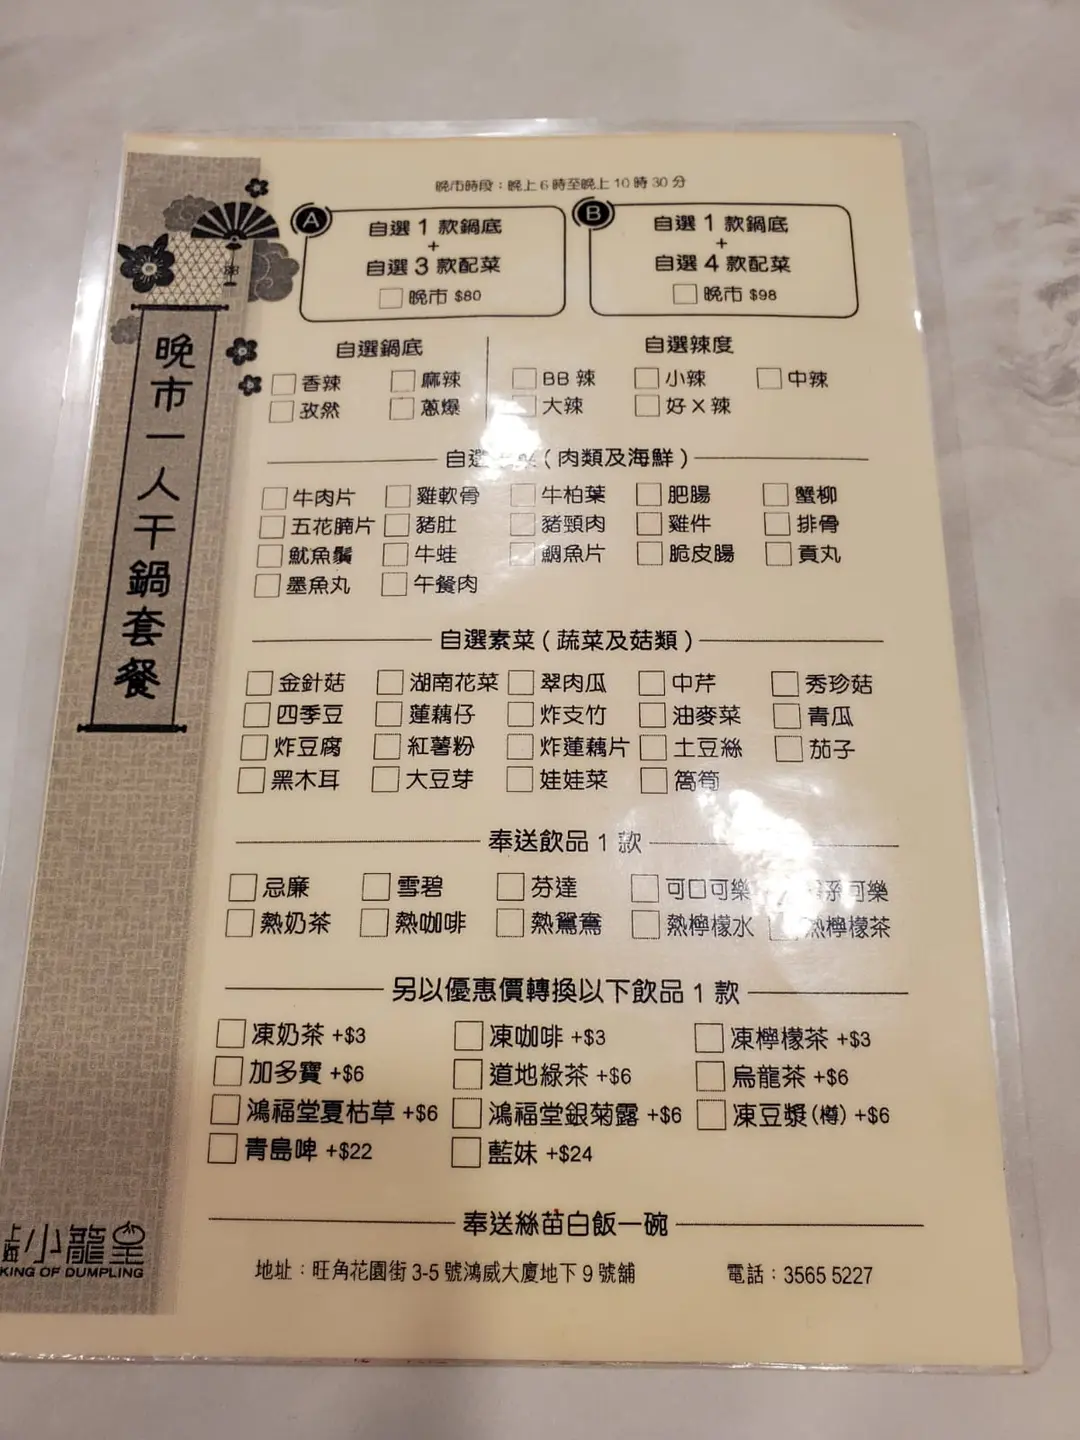 晚市一人干鍋套餐
晚市時段：晚上6時至晚上10時30分
A
自選1款鍋底
+
自選3款配菜
晚市 $80
B
自選1款鍋底
+
自選4款配菜
晚市 $98
自選鍋底
香辣 麻辣
孜然 蔥爆
自選辣度
BB辣 小辣 中辣
大辣 好X辣
自選 菜(肉類及海鮮)
牛肉片 雞軟骨 牛柏葉 肥腸 蟹柳
五花腩片 豬肚 豬頸肉 雞件 排骨
魷魚鬚 牛蛙 鯛魚片 脆皮腸 貢丸
墨魚丸 午餐肉
自選素菜(蔬菜及菇類)
金針菇 湖南花菜 翠肉瓜 中芹 秀珍菇
四季豆 蓮藕仔 炸支竹 油麥菜 青瓜
炸豆腐 紅薯粉 炸蓮藕片 土豆絲 茄子
黑木耳 大豆芽 娃娃菜 萵筍
奉送飲品1款
忌廉 雪碧 芬達 可口可樂 可樂
熱奶茶 熱咖啡 熱鴛鴦 熱檸檬水 熱檸檬茶
另以優惠價轉換以下飲品1款
凍奶茶 +$3 凍咖啡 +$3 凍檸檬茶 +$3
加多寶 +$6 道地綠茶 +$6 烏龍茶 +$6
鴻福堂夏枯草 +$6 鴻福堂銀菊露 +$6 凍豆漿(樽) +$6
青島啤 +$22 藍妹 +$24
奉送絲苗白飯一碗
小龍皇
KING OF DUMPLING
地址：旺角花園街3-5號鴻威大廈地下9號舖 電話：3565 5227